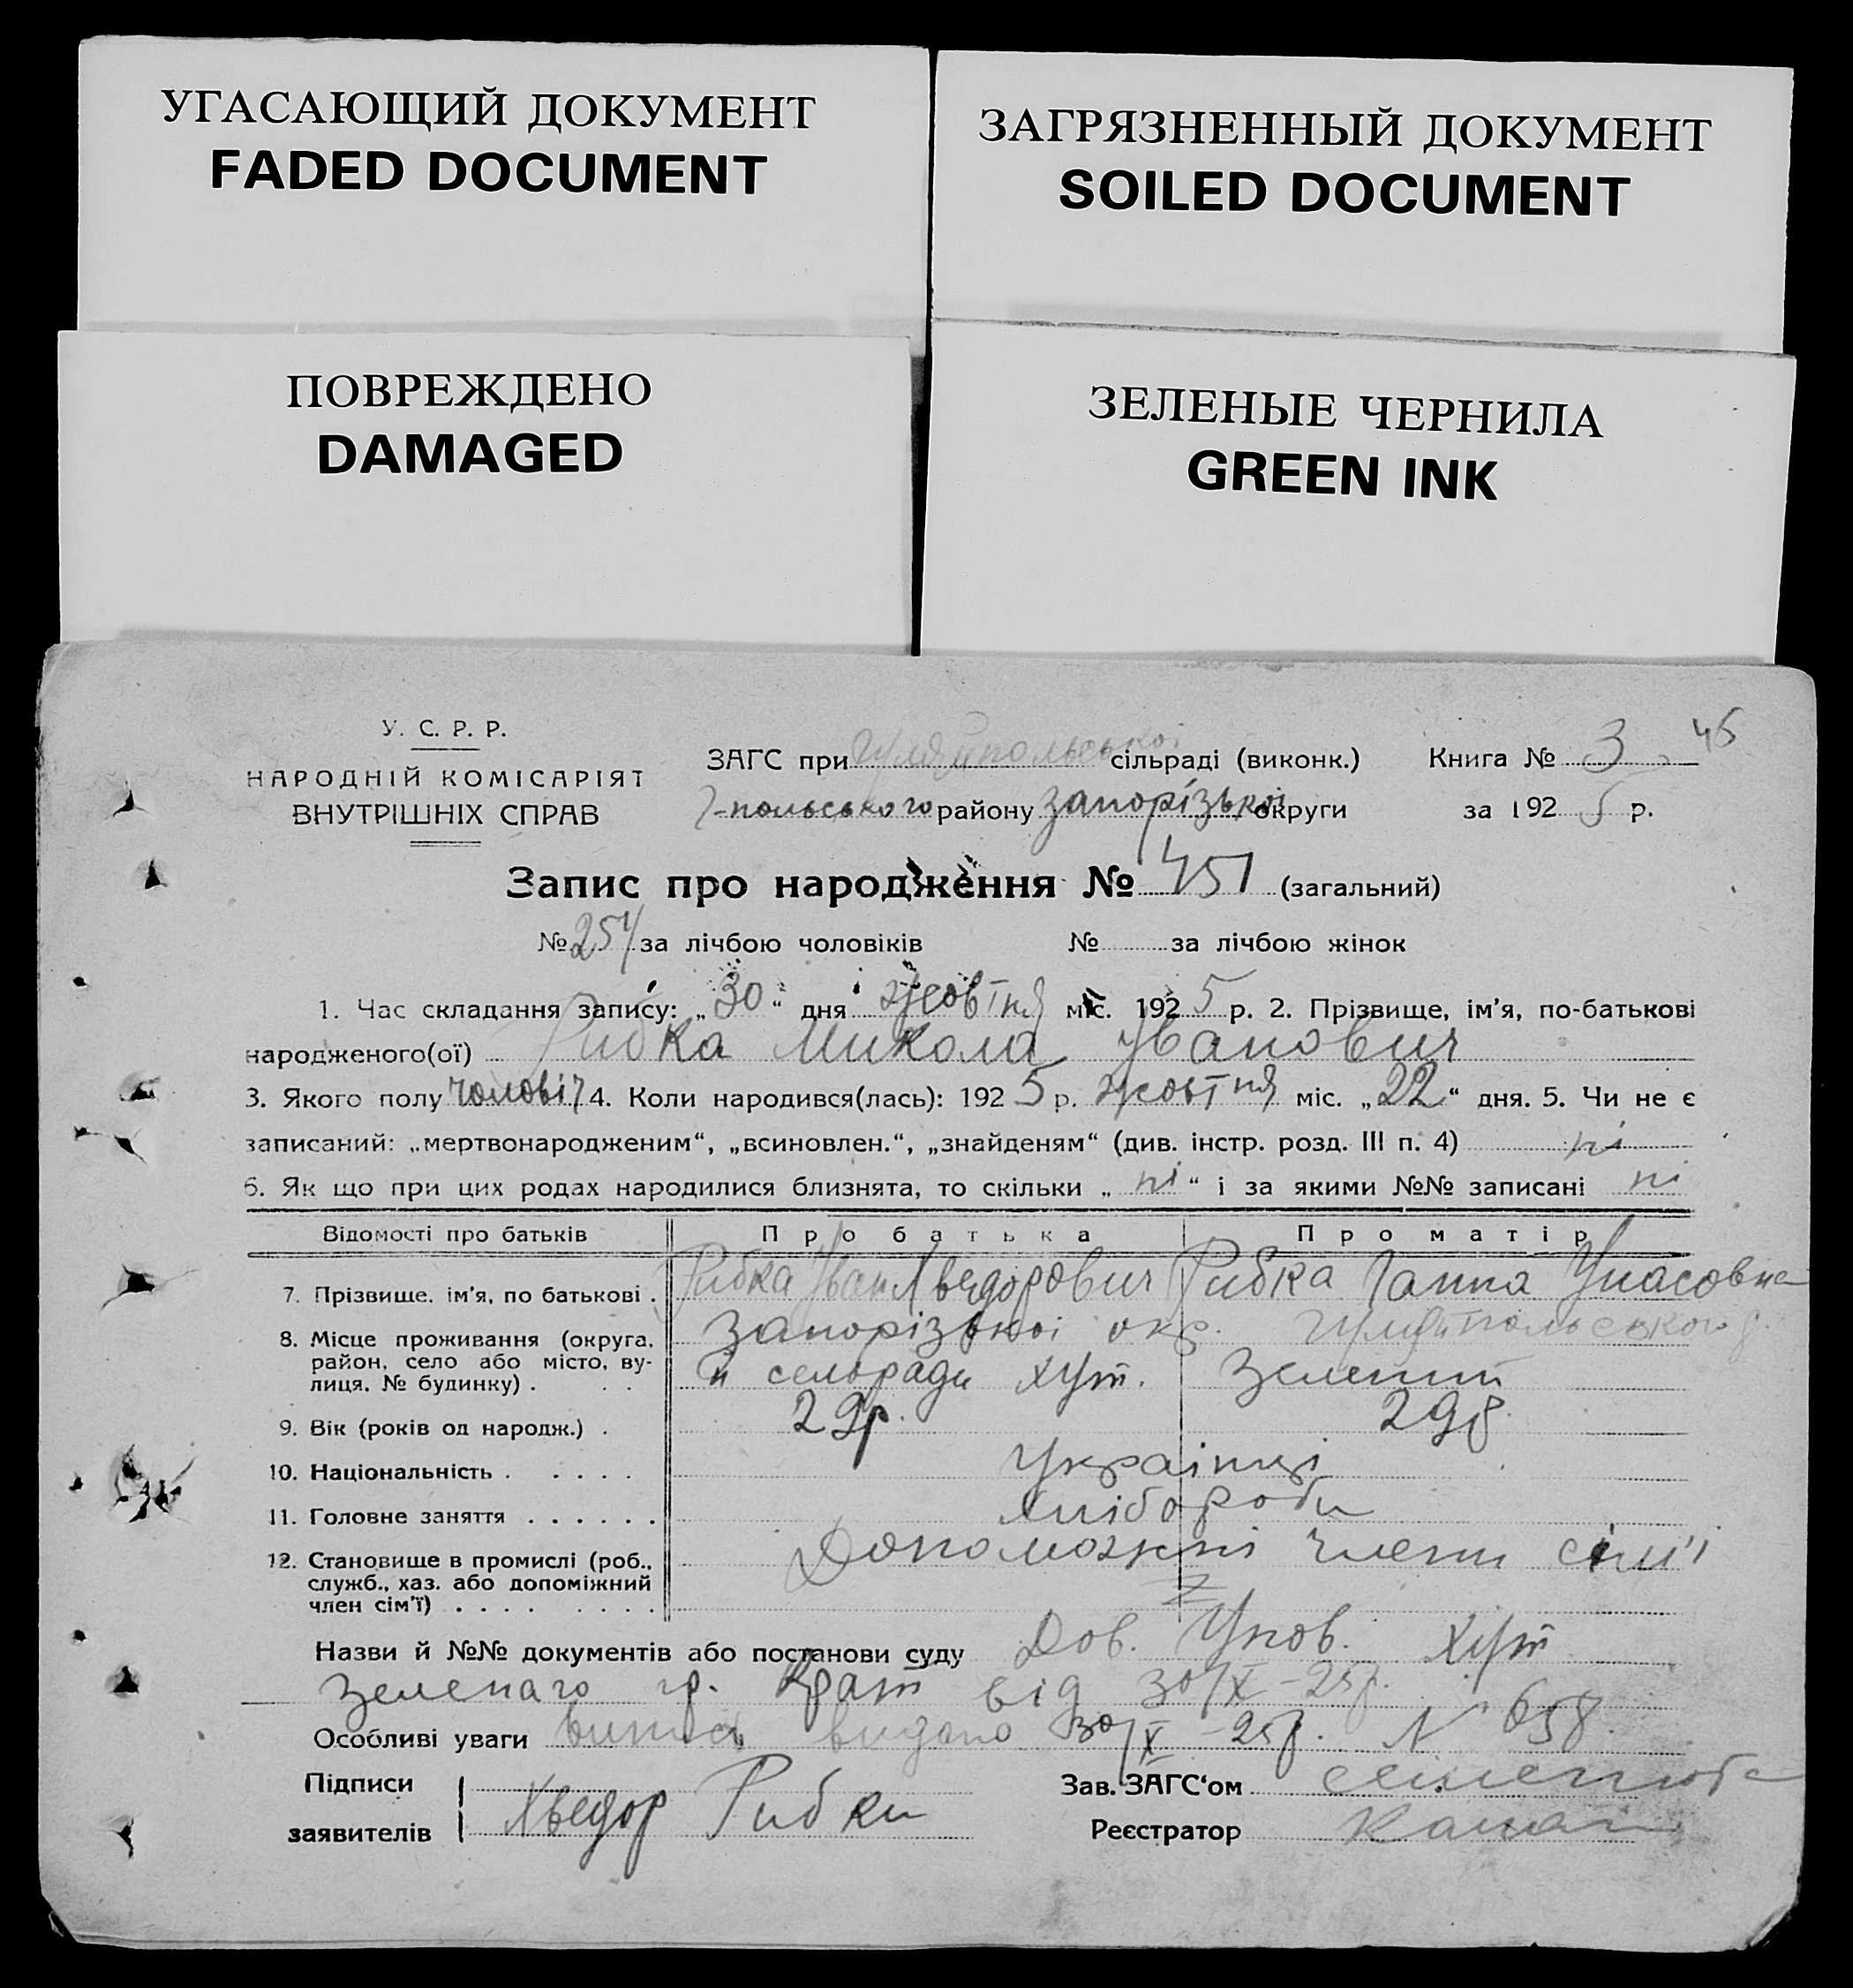 УГАСАЮЩИЙ ДОКУМЕНТ
FADED DOCUMENT
ЗАГРЯЗНЕННЫЙ ДОКУМЕНТ
SOILED DOCUMENT
ПОВРЕЖДЕНО
DAMAGED
ЗЕЛЕНЫЕ ЧЕРНИЛА
GREEN INK
У. С. Р. Р.
НАРОДНІЙ КОМІСАРІЯТ
ВНУТРІШНІХ СПРАВ
ЗАГС при Гуляйпольської сільраді (виконк.) Книга № 3 45
Г-польського району Запорізької округи за 1925 р.
Запис про народження № 451 (загальний)
№ 254 за лічбою чоловіків № за лічбою жінок
1. Час складання запису: „30“ дня жовтня міс. 1925 р. 2. Прізвище, ім'я, по-батькові
народженого(ої) Рибка Микола Іванович
3. Якого полу чоловіч 4. Коли народився(лась): 1925 р. жовтня міс. „22“ дня. 5. Чи не є
записаний: „мертвонародженим“, „всиновлен.“, „знайденям“ (див. інстр. розд. III п. 4) ні
6. Як що при цих родах народилися близнята, то скільки „ні“ і за якими №№ записані ні
Відомості про батьків Про батька Про матір
7. Прізвище, ім'я, по батькові . Рибка Іван Хведорович Рибка Ганна Упасовна
8. Місце проживання (округа, район, село або місто, вулиця, № будинку) . . . Запорізької окр. Гуляйпольського р.
й сельради хут. Зелений
9. Вік (років од народж.) . 29р. 29р.
10. Національність . . . . . Українці
11. Головне заняття . . . . . . Хлібороби
12. Становище в промислі (роб., служб., хаз. або допоміжний член сім'ї) . . . . . . . . Допоможні члени сім'ї
Назви й №№ документів або постанови суду Дов. Упов. хут
Зеленаго гр. Крат від 30/X-25р.
Особливі уваги випис видано 30/X-25р. № 658.
Підписи
заявителів Хведор Рибки
Зав. ЗАГС'ом
Реєстратор